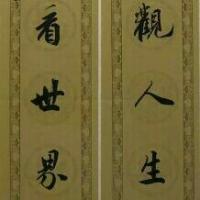 觀人生
看世界